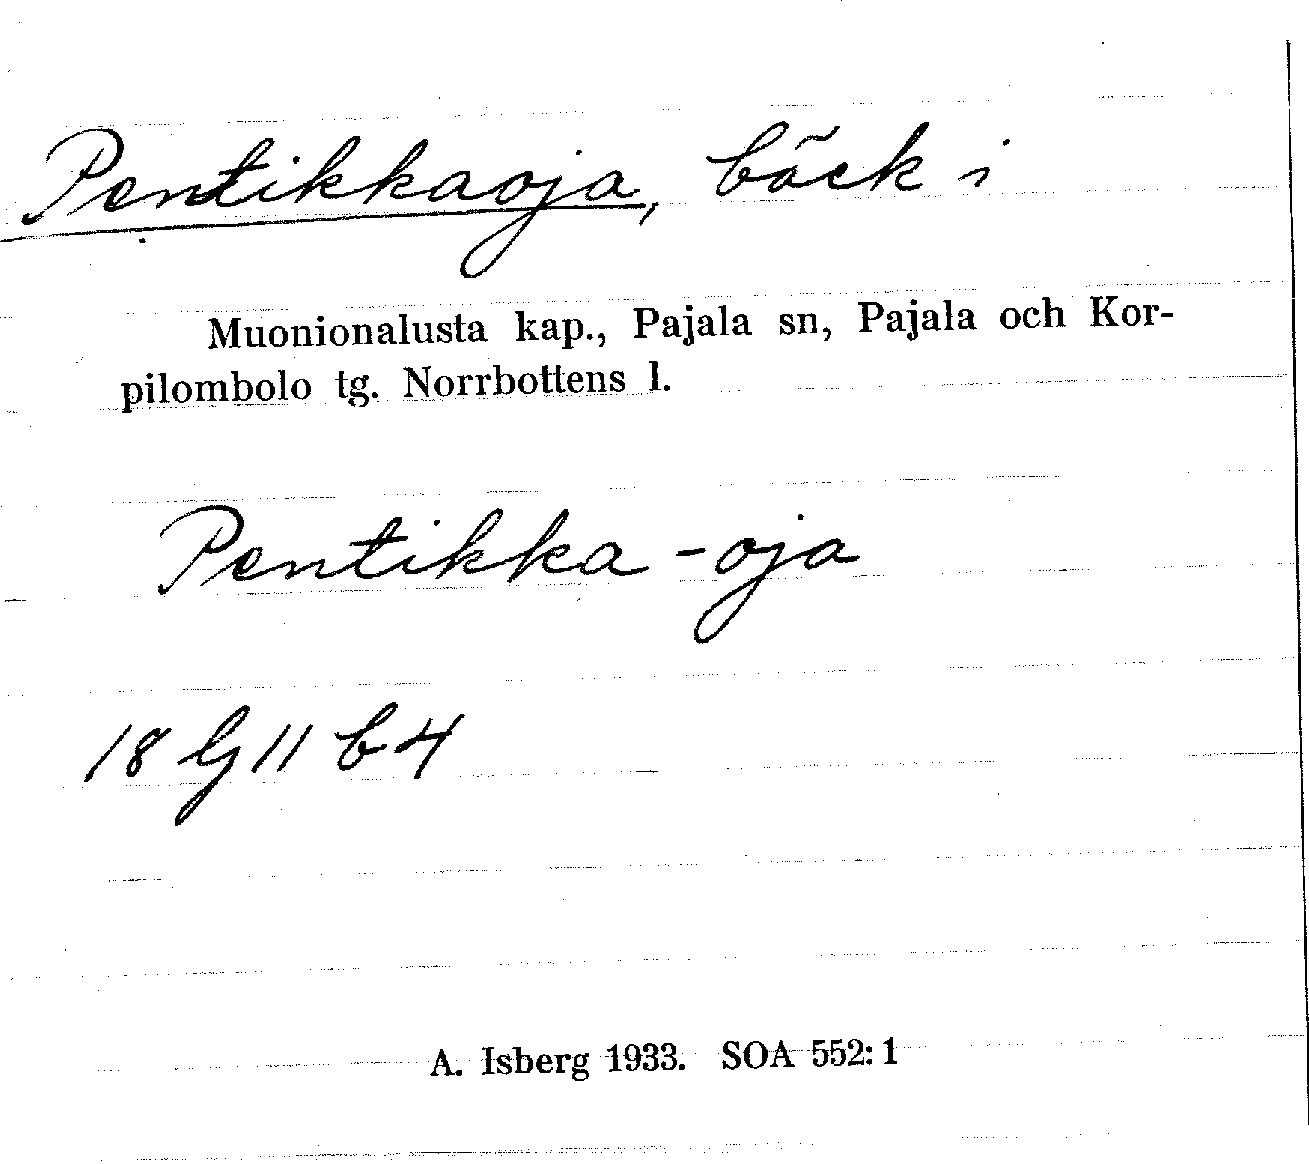 Pentikkaoja, bäck i
Muonionalusta kap., Pajala sn, Pajala och Kor-
pilombolo tg. Norrbottens l.
Pentikka-oja
18 G 11 b 4
A. Isberg 1933. SOA 552:1